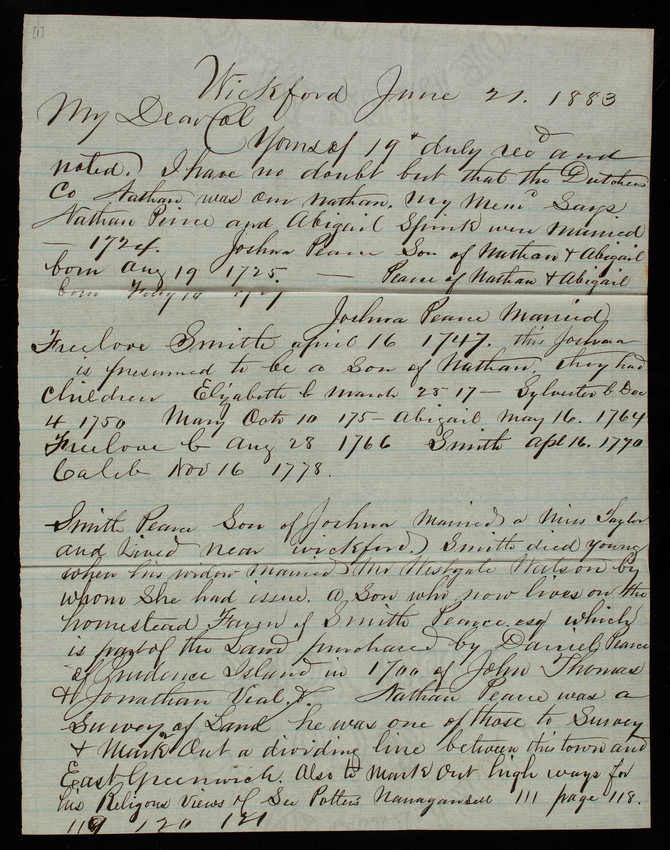 [1]
Wickford June 21. 1883
My Dear Col
Yours of 19th duly recd and
noted. I have no doubt but that the Dutchess
Co Nathan was our Nathan. My Mem Says
Nathan Peirce and Abigail Spink were Married
— 1724. Joshua Pearce Son of Nathan & Abigail
born Aug 19 1725. — Pearce of Nathan & Abigail
born Feby 14
Joshua Pearce Married
Freelove Smith april 16 1747. this Joshua
is presumed to be a Son of Nathan, they had
Children Elizabeth b March 25 17— Sylvester b Dec
4 1750 Mary Octo 10 175– Abigail May 16. 1764
Freelove b Aug 28 1766 Smith apl 16. 1770
Caleb Nov 16 1778.
Smith Pearce Son of Joshua Married a Miss Taylor
and Lived near wickford. Smith died young
when his widow Married Mr Westgate Watson by
whom She had issue. a Son who now lives on the
homestead Farm of Smith Pearce. esq which
is part of the Land purchased by Daniel Pearce
of Prudence Island in 1700 of John Thomas
& Jonathan Vial. &c Nathan Pearce was a
Survey of Land he was one of those to Survey
& Mark Out a dividing line between this town and
East Greenwich. Also to Mark Out high ways for
his Religous Views of See Potters Narragansett 111 page 118.
119 120 121